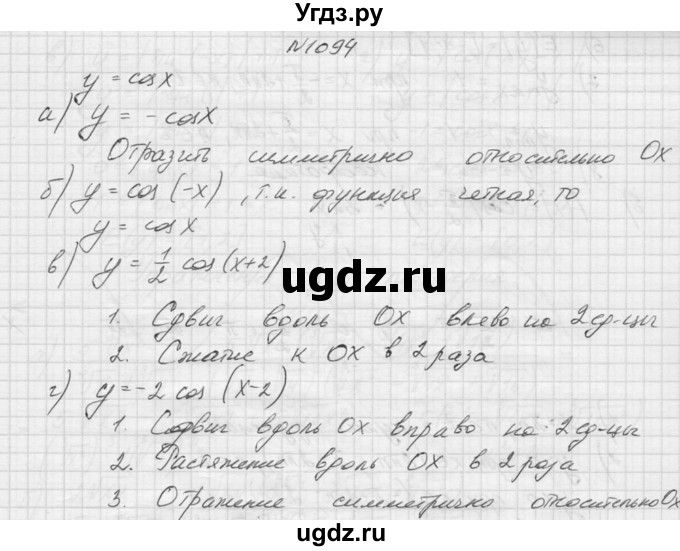 Угдз.ру
№1094
y = cos x
а) y = - cos x
Отразить симметрично относительно Ox
б) y = cos (-x) , т.к. функция четная, то
y = cos x
в) y = 1/2 cos (x+2)
gdz.ru
ugdz.ru
1. Сдвиг вдоль OX влево на 2 ед-цы
2. Сжатие к OX в 2 раза
г) y = -2 cos (x-2)
1. Сдвиг вдоль OX вправо на 2 ед-цы
2. Растяжение вдоль OX в 2 раза
3. Отражение симметрично относительно Ox
ugdz.ru